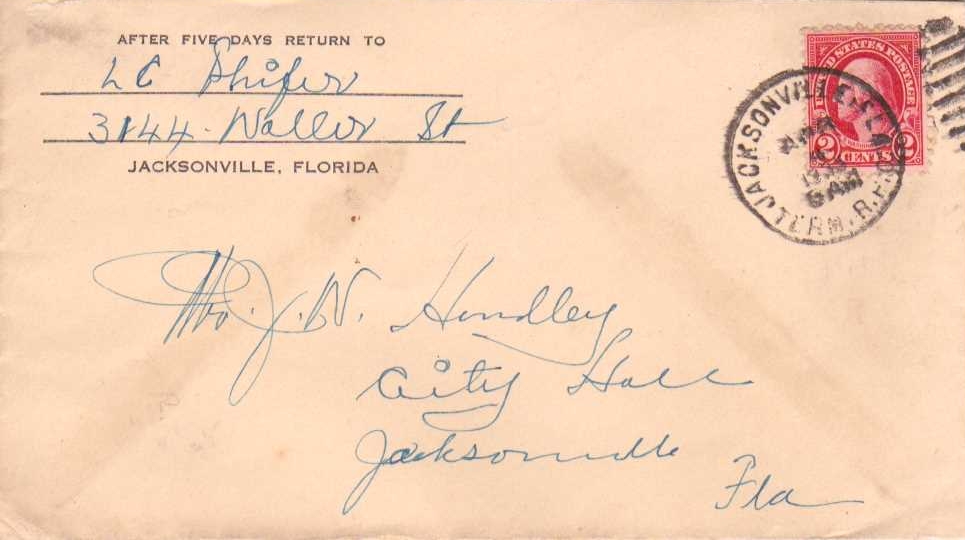 AFTER FIVE DAYS RETURN TO
LC Shifer
3144 Waller St
JACKSONVILLE, FLORIDA
UNITED STATES POSTAGE
2 CENTS 2
JACKSONVILLE, FLA
APR
AM
TERM. R.P.O.
J. W. Hundley
City Hall
Jacksonville
Fla